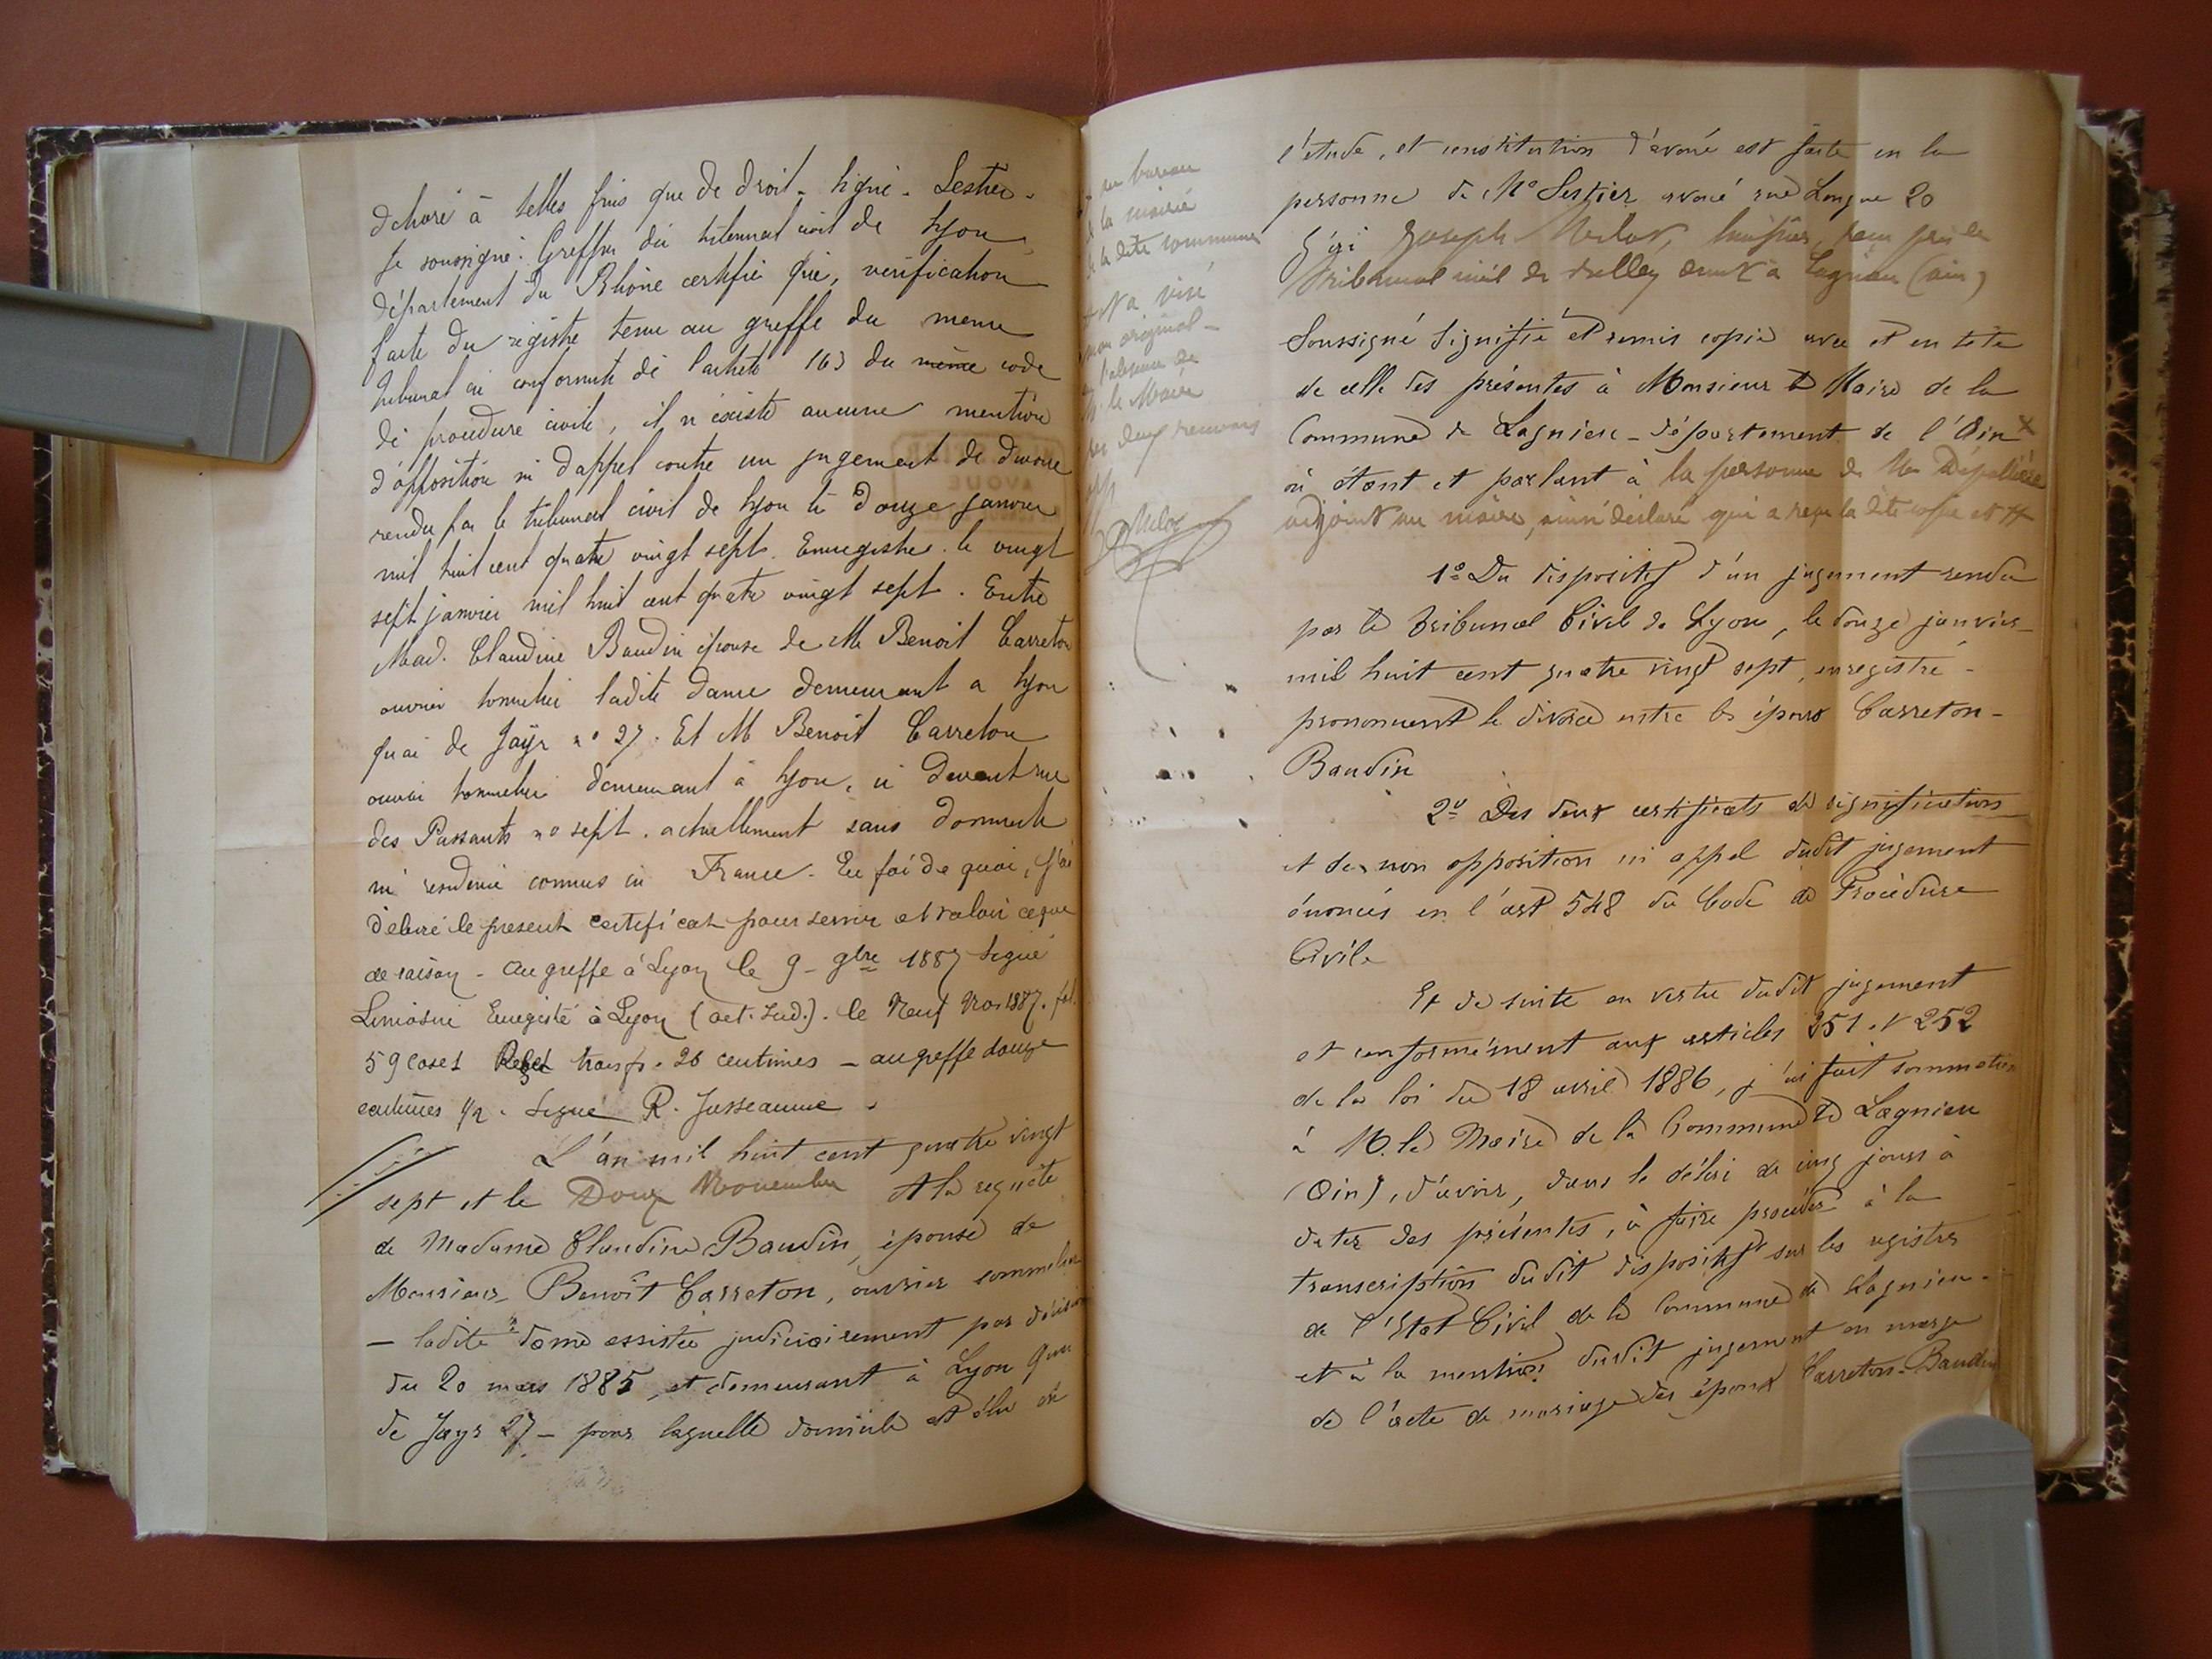 délivré à telles fins que de droit. Signé. Sestier.
Je soussigné. Greffier du tribunal civil de Lyon,
département du Rhône certifie que, vérification
faite du registre tenu au greffe du meme
tribunal en conformité de l'article 163 du même code
de procédure civile, il n'existe aucune mention
d'opposition ni d'appel contre un jugement de divorce
rendu par le tribunal civil de Lyon le douze janvier
mil huit cent quatre vingt sept. Enregistré. le vingt
sept janvier mil huit cent quatre vingt sept. Entre
Mad. Claudine Baudin épouse de M Benoit Carreton
ouvrier sommelier ladite dame demeurant a Lyon
quai de Jayr n° 27. Et M Benoit Carreton
ouvrier sommelier demeurant à Lyon, ci devant rue
des Passants n° sept. actuellement sans domicile
ni residence connus en France. En foi de quoi, j'ai
délivré le present certificat pour servir et valoir ce que
de raison - au greffe à Lyon le 9 - 9bre 1887 Signé
Enregistré à Lyon (act. Jud.). le Neuf Nov 1887. fol.
59 Case 1 trois fr. 25 centimes - au greffe douze
centimes 1/2. Signé R. Jusseaume.
L'an mil huit cent quatre vingt
sept et le Douze Novembre A la requête
de Madame Claudine Baudin, épouse de
Monsieur Benoît Carreton, ouvrier sommelier
- ladite dame assistée judiciairement par décision
du 20 mars 1885, et demeurant à Lyon Quai
de Jayr 27 - pour laquelle domicile est élu en
l'étude, et constitution d'avoué est faite en la
personne de Me Sestier avoué rue Longue 20
J'ai Joseph Melor, huissier, reçu près le
Tribunal civil de Belley demt à Lagnieu (ain)
Soussigné Signifié et remis copie avec et en tête
de celle des présentes à Monsieur le Maire de la
Commune de Lagnieu - département de l'Ain X
où étant et parlant à la personne de Mr
adjoint au maire, ainsi déclaré qui a reçu la dite copie et #
1° Du dispositif d'un jugement rendu
par le Tribunal Civil de Lyon, le douze janvier
mil huit cent quatre vingt sept, enregistré -
prononçant le divorce entre les époux Carreton -
Baudin
2° Des deux certificats de signification
et de non opposition ni appel dudit jugement
énoncés en l'art 548 du Code de Procédure
Civile
Et de suite en vertu dudit jugement
et conformément aux articles 251 et 252
de la loi du 18 avril 1886, j'ai fait sommation
à M. le Maire de la Commune de Lagnieu
(Ain), d'avoir, dans le délai de cinq jours à
dater des présentes, à faire procéder à la
transcription dudit dispositif sur les registres
de l'Etat Civil de la Commune de Lagnieu -
et à la mention dudit jugement en marge
de l'acte de mariage des époux Carreton-Baudin
au bureau
de la mairie
de la dite commune
# et a visé
mon original -
en l'absence de
M. le Maire
les deux renvois
app
Melor
AVOUE